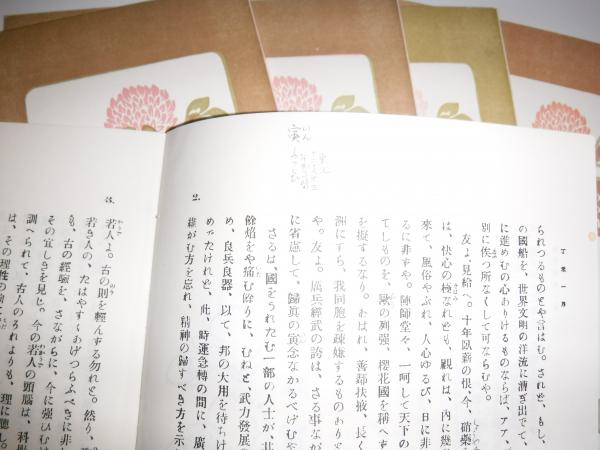 丁未一月
られつるものとや言はむ。されど、もし、
の國船を、世界文明の洋流に漕ぎ出でて、
に進めむの心ありけるものならば、アア、
別に俟つ所なくして可ならむや。
友よ、見給へ。十年臥薪の恨、今、硝藥
は、快心の極なれども、觀れば、內に幾
來て、風俗やぶれ、人心ゆるび、日に非
るに非ずや。陣師堂々、一呵して天下の
てしものを、歐の列强、櫻花國を稱へ
を擬するなり。あはれ、善鄰扶掖、長く
洲にすら、我同胞を疎嫌するものありと
や。友よ。厲兵經武の誇は、さる事なが
に省慮して、歸眞の
念なかるべけむや
2.
さるは國をうれたむ一部の人士が、北
餘焰をや痛む餘りに、むねと、武力發展の
め、良兵良器、以て、邦の大用を待ちけ
めでたけれど、此、時運急轉の間に、廣
維がむ方を忘れ、精神の歸すべき方を示
若人よ。古の則を輕んずる勿れと。然り、
若き人の、たはやすくあげつらふべきに非
も、古の經驗を、さながらに、今に强ひむは
その宜しきを見じ。今の若人の頭腦は、科
訓へられて、古人のそれよりも、理に聰し。
は、その理性の